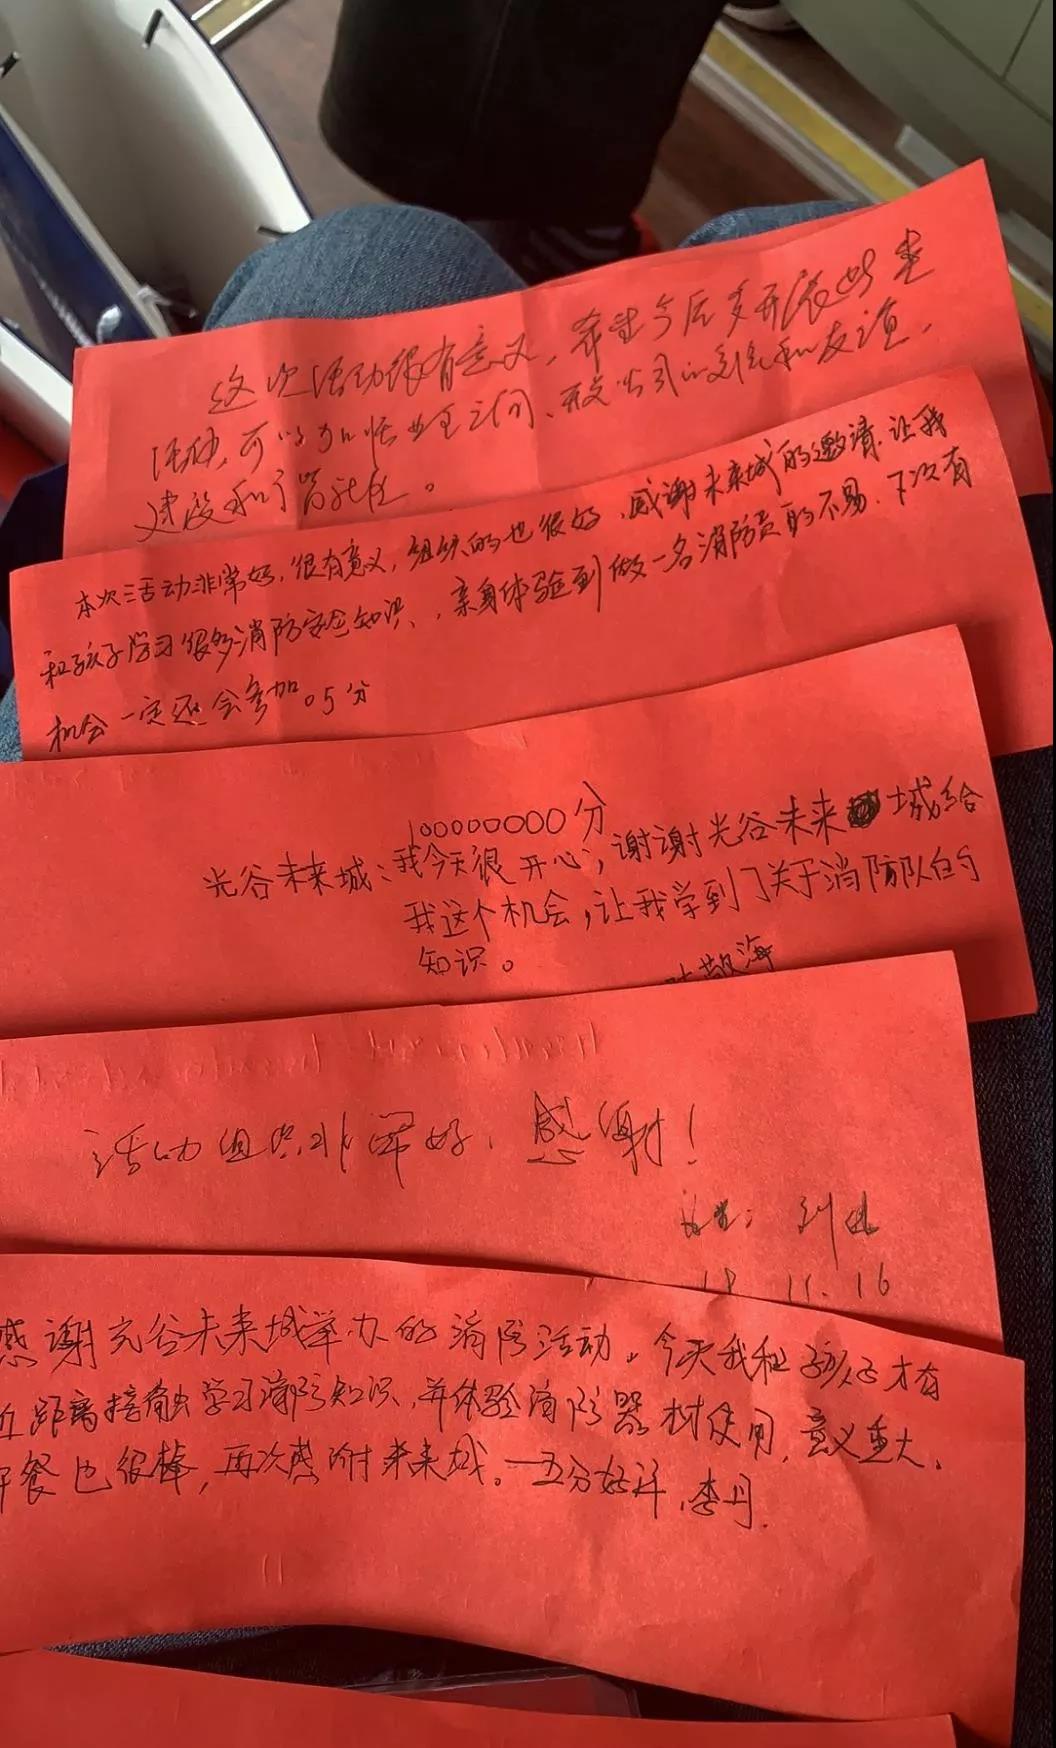 这次活动很有意义，希望今后多开展此类
活动，可以加怅业主之间、和友谊，
建设和管社区。
本次活动非常好，很有意义，组织的也很好，感谢未来城的邀请，让我
和孩子学习很多消防安全知识，亲身体验到做一名消防员的不易，下次有
机会一定还会参加。5分
100000000分
光谷未来城：我今天很开心，谢谢光谷未来城给
我这个机会，让我学到了关于消防队的
知识。
敬海
活动组织非常好，感谢！
11.16
感谢光谷未来城举办的消防活动。今天我和孩子才有
距离接触学习消防知识，并体验消防器材使用，意义重大，
餐也很棒，再次感谢未来城。五分好评，李丹.